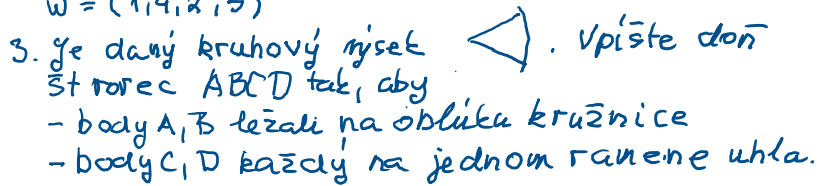 w = (1,4,2,5)
3. Je daný kruhový výsek . Vpíšte doň
štvorec ABCD tak, aby
- body A, B ležali na oblúku kružnice
- body C, D každý na jednom ramene uhla.